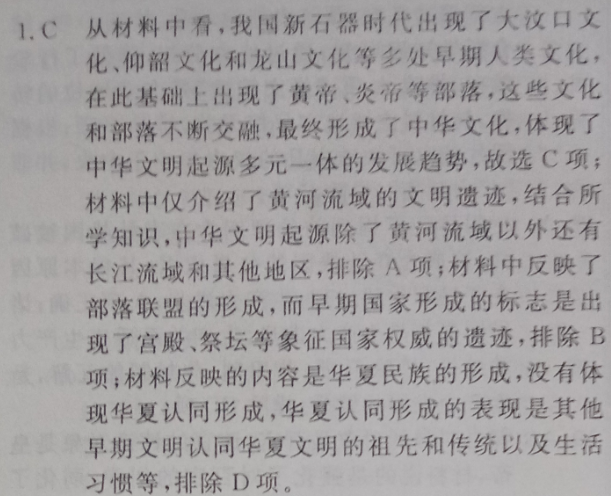 1. C 从材料中看,我国新石器时代出现了大汶口文
化、仰韶文化和龙山文化等多处早期人类文化,
在此基础上出现了黄帝、炎帝等部落,这些文化
和部落不断交融,最终形成了中华文化,体现了
中华文明起源多元一体的发展趋势,故选 C 项;
材料中仅介绍了黄河流域的文明遗迹,结合所
学知识,中华文明起源除了黄河流域以外还有
长江流域和其他地区,排除 A 项;材料中反映了
部落联盟的形成,而早期国家形成的标志是出
现了宫殿、祭坛等象征国家权威的遗迹,排除 B
项;材料反映的内容是华夏民族的形成,没有体
现华夏认同形成,华夏认同形成的表现是其他
早期文明认同华夏文明的祖先和传统以及生活
习惯等,排除 D 项。